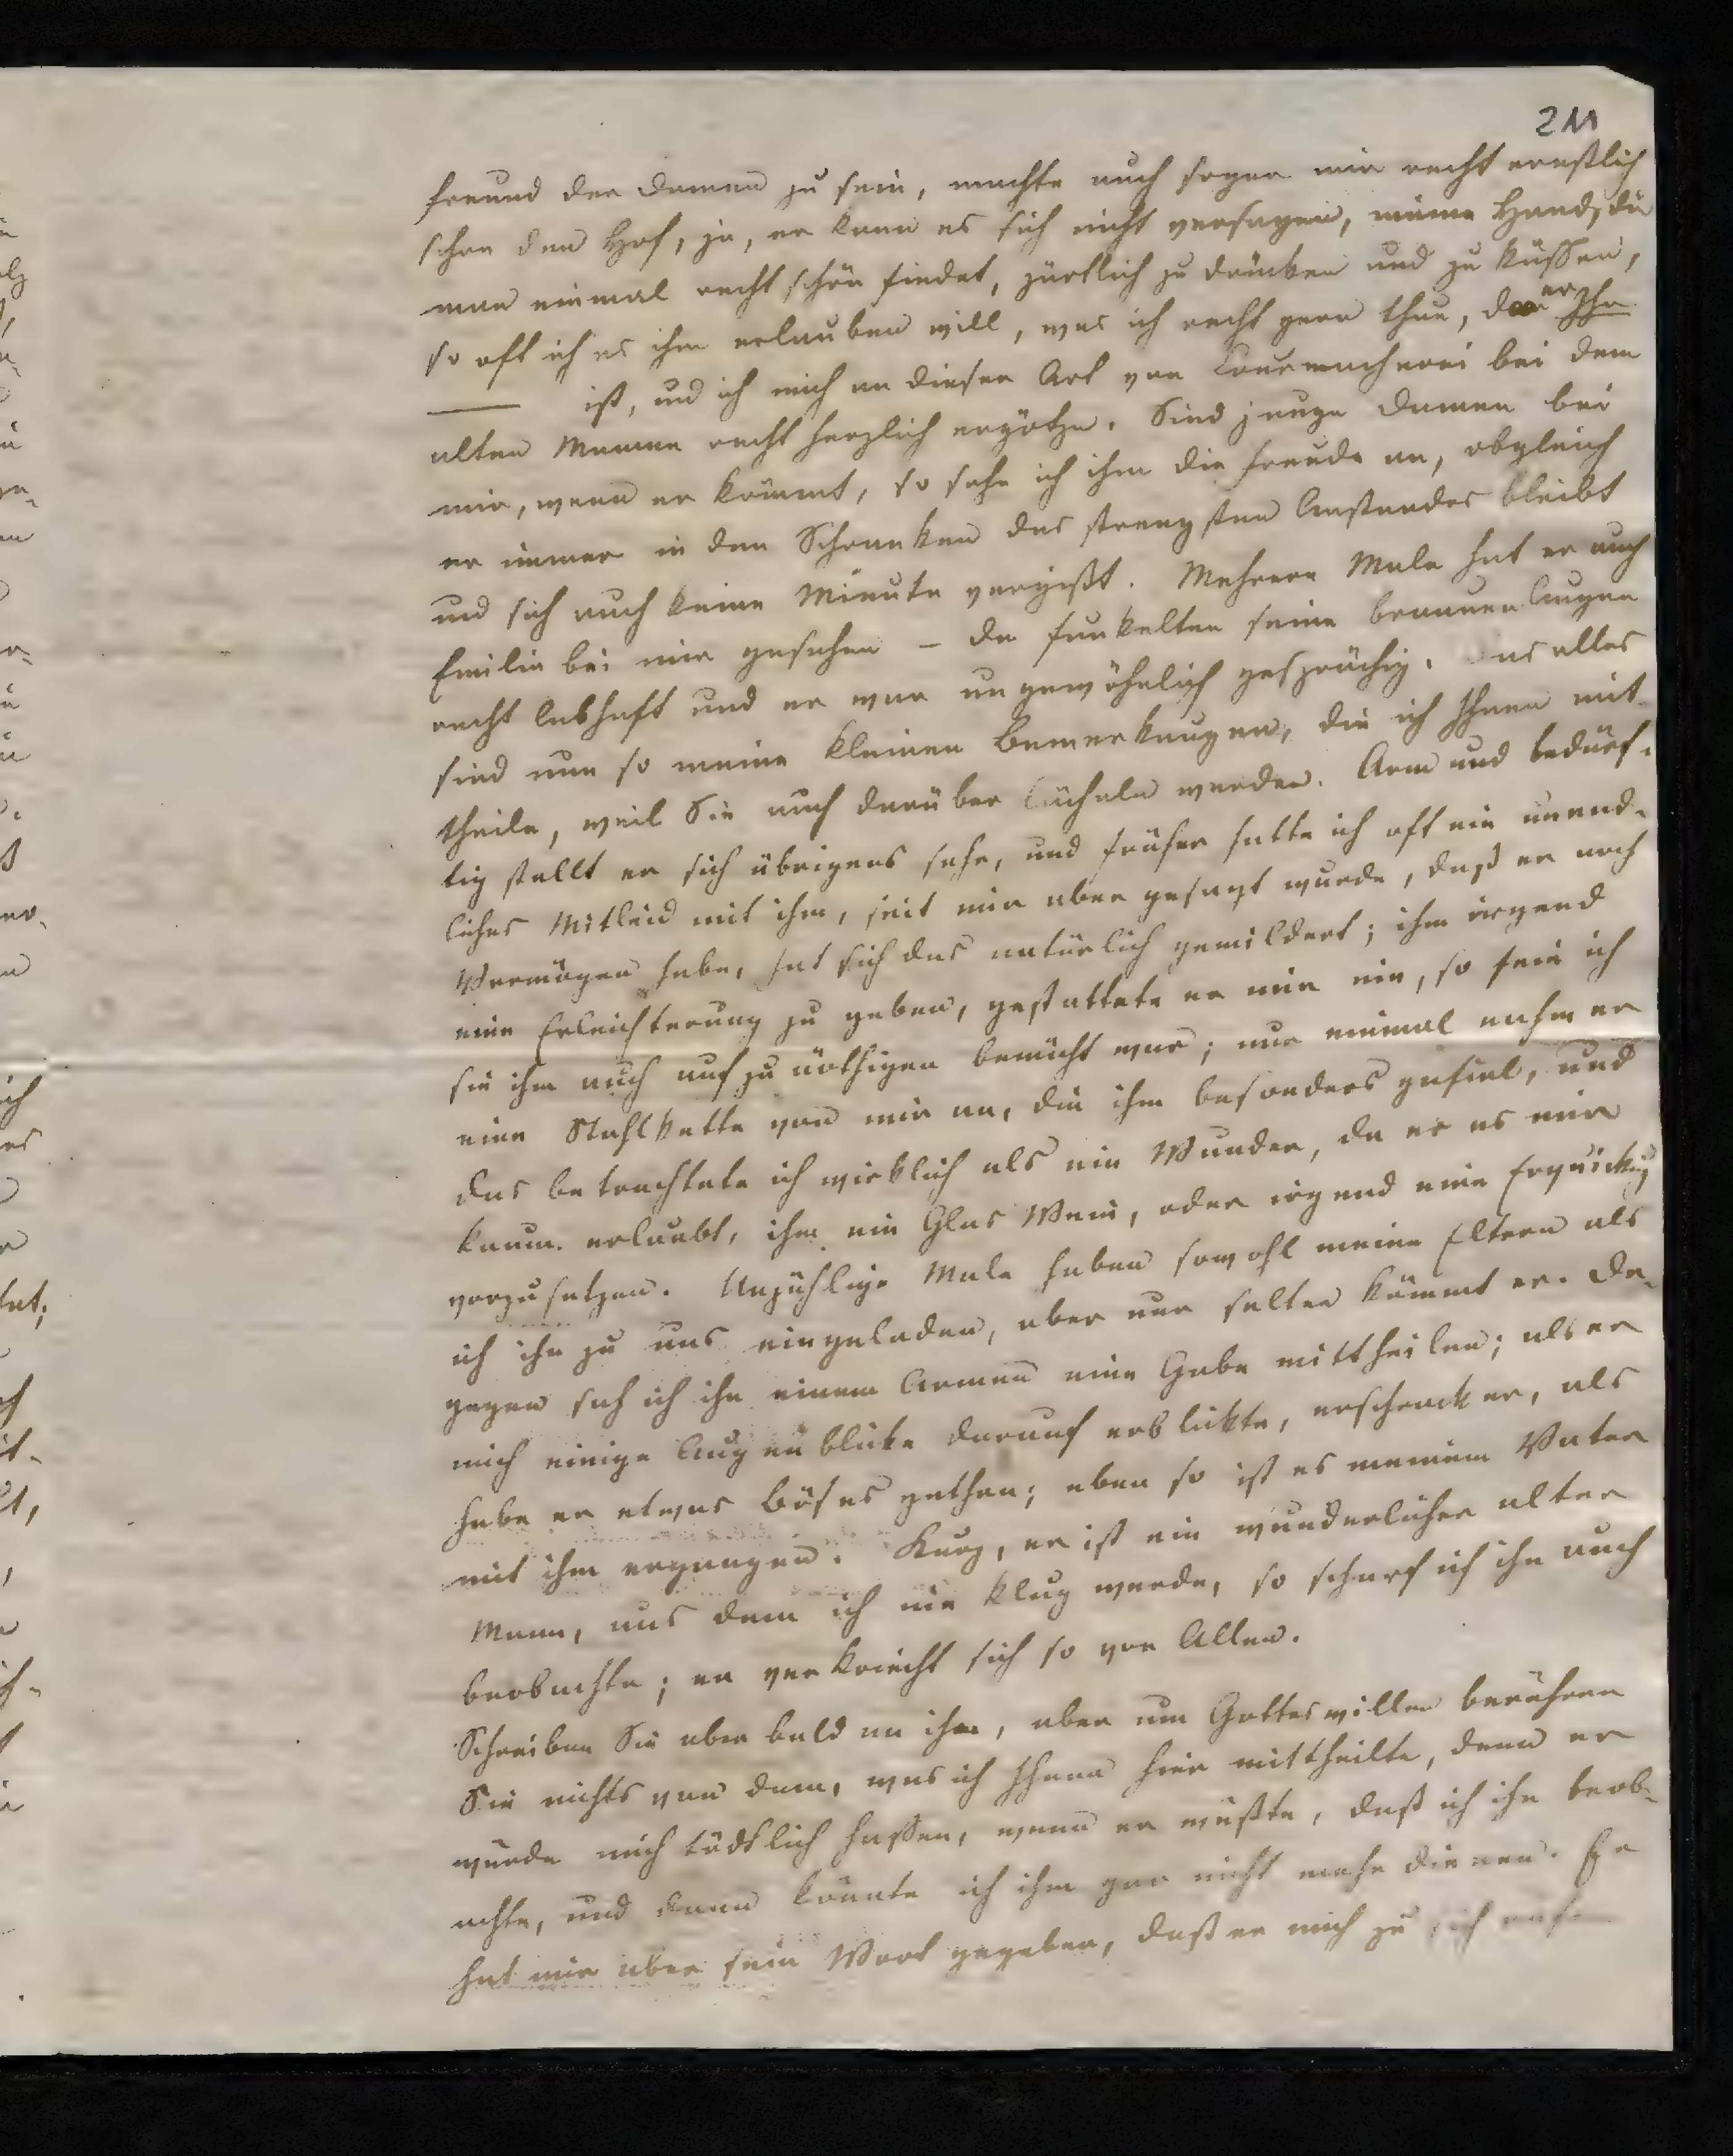 211
freund der Damen zu sein, machte auch sogar mir recht ernstlich
schon den Hof, ja, er kann es sich nicht versagen, meine Hand, die
man einmal recht schön findet, zärtlich zu drücken und zu küssen,
so oft ich es ihm erlauben will, was ich recht gern thue, da er Ihr
ist, und ich mich an dieser Art von Courmacherei bei dem
alten Manne recht herzlich ergötze. Sind junge Damen bei
mir, wenn er kömmt, so sehe ich ihm die Freude an, obgleich
er immer in den Schranken des strengsten Anstandes bleibt
und sich auch keine Minute vergißt. Mehrere Male hat er auch
Emilie bei mir gesehen – da funkelten seine braunen Augen
recht lebhaft und er war ungewöhnlich gesprächig. Das alles
sind nun so meine kleinen Bemerkungen, die ich Ihnen mit-
theile, weil Sie auch darüber lächeln werden. Arm und bedürf-
tig stellt er sich übrigens sehr, und früher hatte ich oft ein unend-
liches Mitleid mit ihm, seit mir aber gesagt wurde, daß er noch
Vermögen habe, hat sich das natürlich gemildert; ihm irgend
eine Erleichterung zu geben, gestattete er mir nie, so fein ich
sie ihm auch aufzunöthigen bemüht war; nur einmal nahm er
eine Stahlkette von mir an, die ihm besonders gefiel, und
das betrachtete ich wirklich als ein Wunder, da er es mir
kaum erlaubt, ihm ein Glas Wein, oder irgend eine Erquickung
vorzusetzen. Unzählige Male haben sowohl meine Eltern als
ich ihn zu uns eingeladen, aber nur selten kömmt er. Da-
gegen sah ich ihn einem Armen eine Gabe mittheilen; als er
mich einige Augenblicke darauf erblickte, erschrack er, als
habe er etwas Böses gethan; eben so ist es meinem Vater
mit ihm ergangen. Kurz, er ist ein wunderlicher alter
Mann, aus dem ich nie klug werde, so scharf ich ihn auch
beobachte; er verkriecht sich so vor Allen.
Schreiben Sie aber bald an ihn, aber um Gotteswillen berühren
Sie nichts von dem, was ich Ihnen hier mittheilte, denn er
würde mich tödtlich hassen, wenn er wüßte, daß ich ihn beob-
achte, und dann könnte ich ihm gar nicht mehr dienen. Er
hat mir aber sein Wort gegeben, daß er mich zu sich rufen